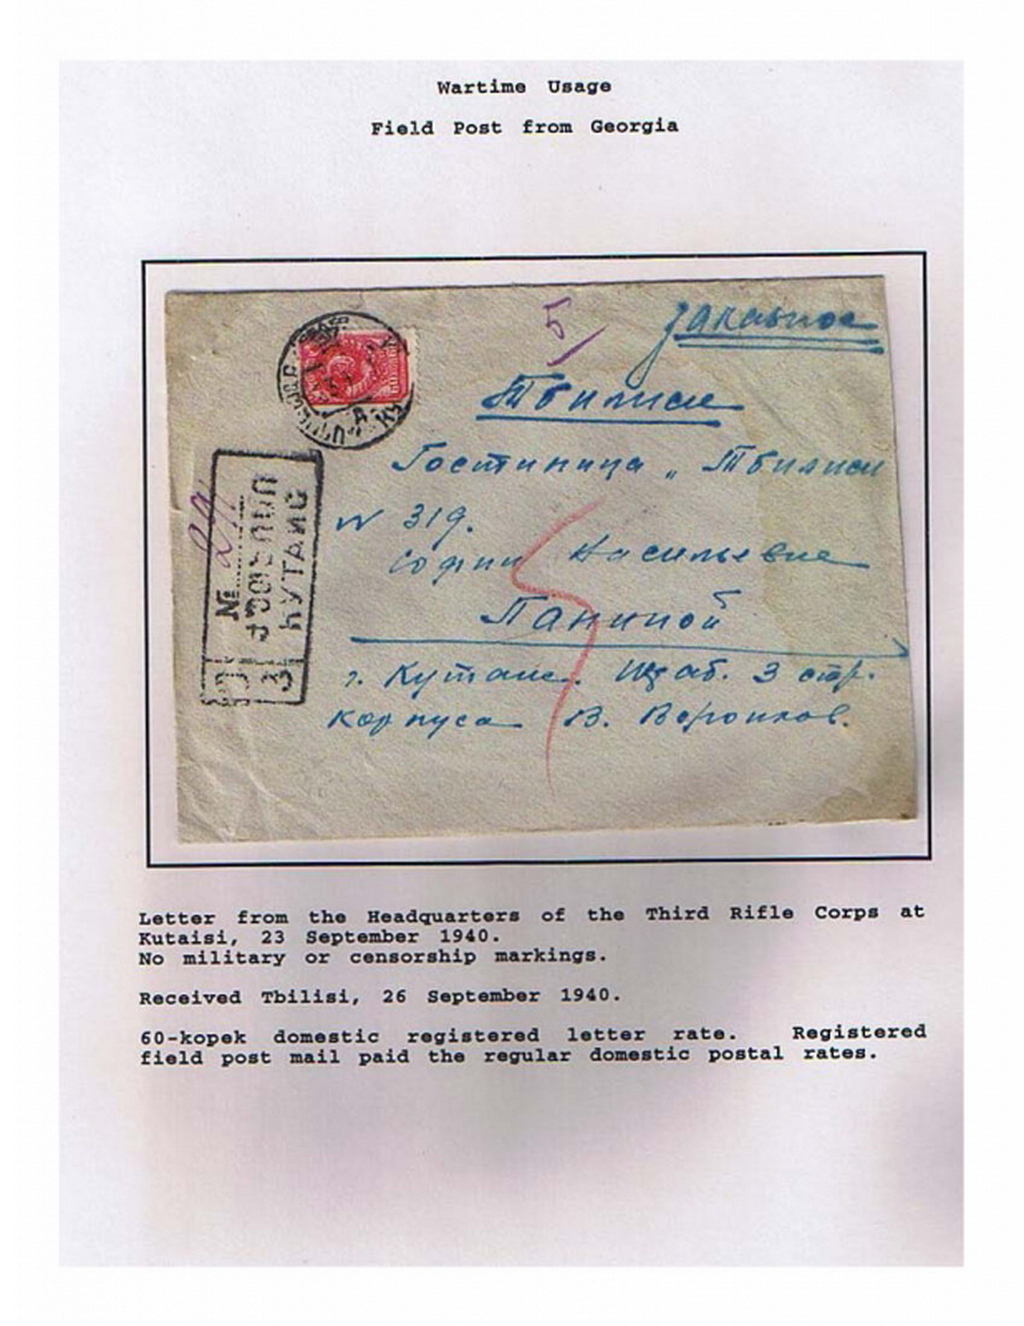 Wartime Usage
Field Post from Georgia
5
Заказное
Тбилиси
Гостиница „Тбилиси
N 319.
Софии Васильевне
Паниной
г. Кутаис. Штаб. 3 стр.
корпуса В. Воронков.
№ 29
ქუთაისი
КУТАИС
Letter from the Headquarters of the Third Rifle Corps at
Kutaisi, 23 September 1940.
No military or censorship markings.
Received Tbilisi, 26 September 1940.
60-kopek domestic registered letter rate. Registered
field post mail paid the regular domestic postal rates.